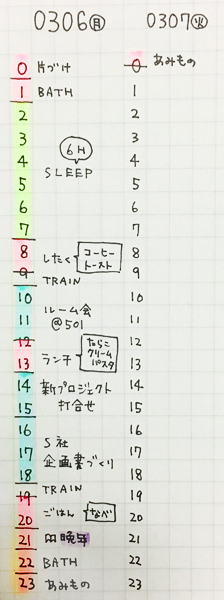 0306(月)
0 片づけ
1 BATH
2
3
6H
4 SLEEP
5
6
7
8 したく コーヒー トースト
9 TRAIN
10
11 ルーム会 @501
12
13 ランチ たらこ クリーム パスタ
14 新プロジェクト
15 打合せ
16
17 S社 企画書づくり
18
19 TRAIN
20 ごはん なべ
21
22 BATH
23 あみもの
0307(火)
0 あみもの
1
2
3
4
5
6
7
8
9
10
11
12
13
14
15
16
17
18
19
20
21
22
23